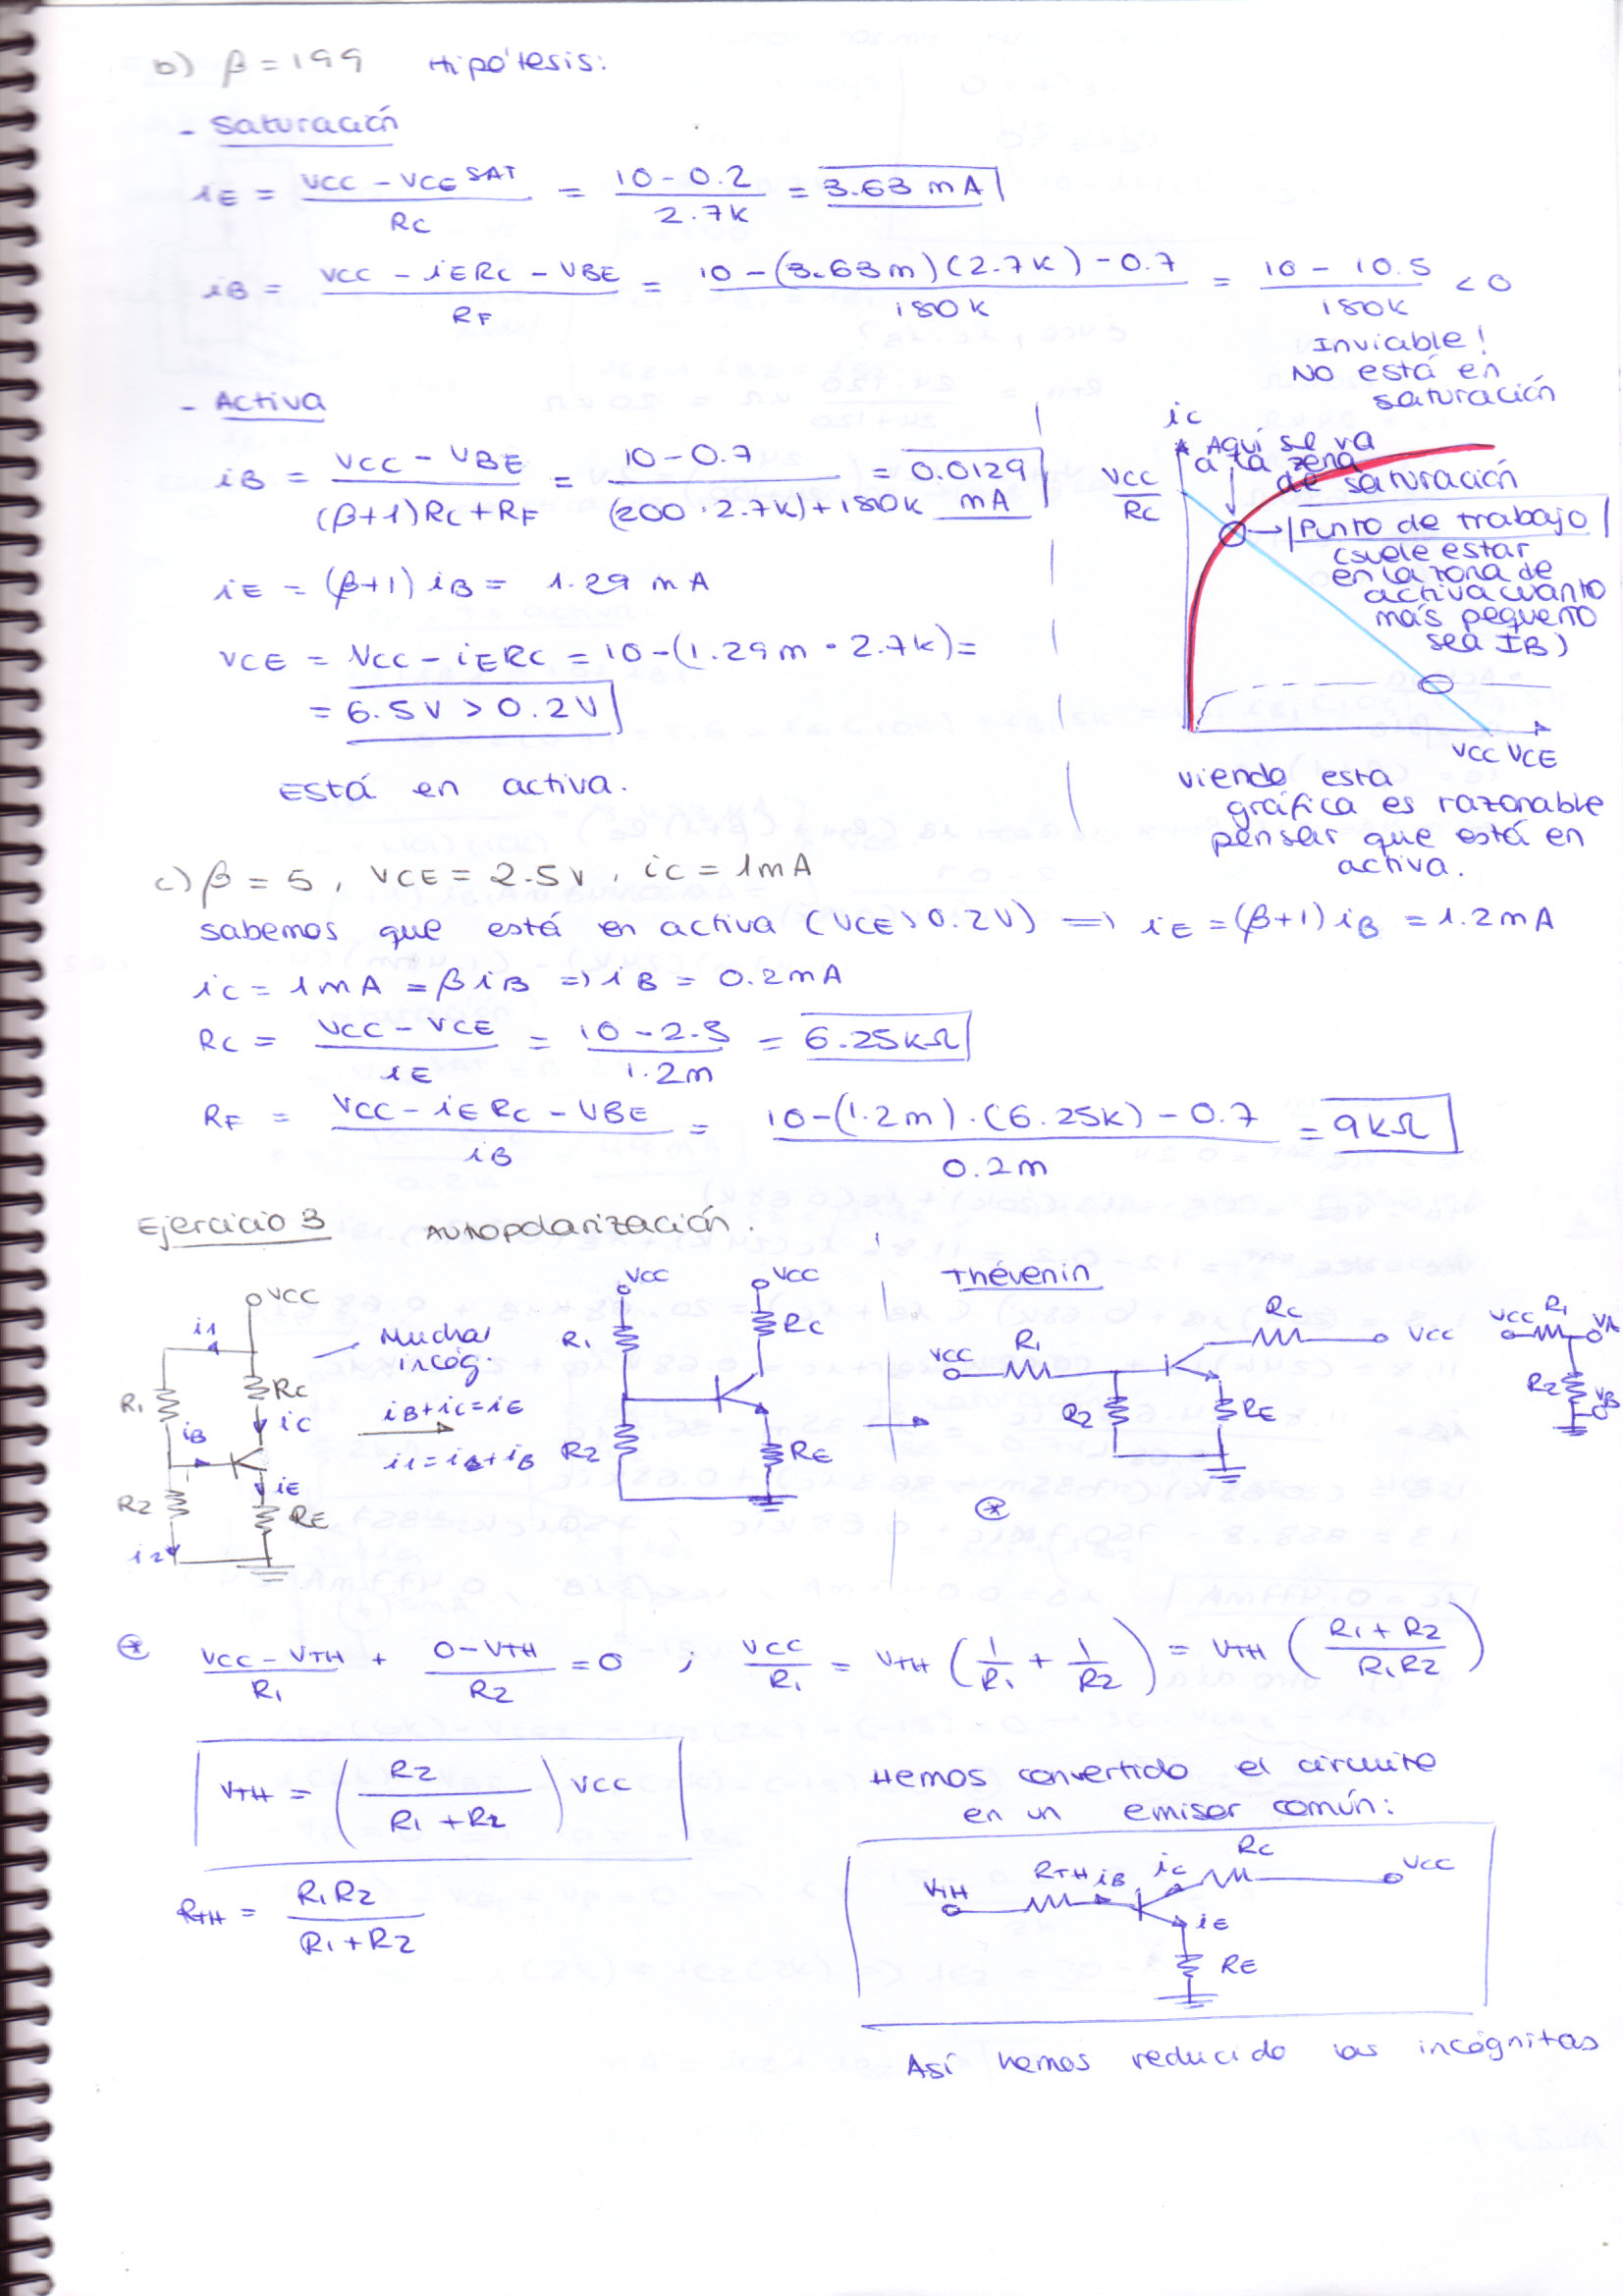 b) β = 199 Hipótesis:
- Saturación
iE = (VCC - VCE SAT) / RC = (10 - 0.2) / 2.7k = 3.63 mA
iB = (VCC - iERC - VBE) / RF = (10 - (3.63m)(2.7k) - 0.7) / 180k = (10 - 10.5) / 180k < 0
Inviable!
No está en
saturación
- Activa
iB = (VCC - VBE) / ((β+1)RC + RF) = (10 - 0.7) / ((200·2.7k) + 180k) = 0.0129 mA
iE = (β+1) iB = 1.29 mA
VCE = VCC - iERC = 10 - (1.29m · 2.7k) =
= 6.5V > 0.2V
Está en activa.
iC
VCC / RC
Aquí se va
a la zona
de saturación
Punto de trabajo
(suele estar
en la zona de
activa cuanto
más pequeño
sea IB)
VCC VCE
viendo esta
gráfica es razonable
pensar que está en
activa.
c) β = 5, VCE = 2.5V, iC = 1mA
sabemos que está en activa (VCE > 0.2V) ⟹ iE = (β+1) iB = 1.2mA
iC = 1mA = β iB ⟹ iB = 0.2mA
RC = (VCC - VCE) / iE = (10 - 2.5) / 1.2m = 6.25kΩ
RF = (VCC - iE RC - VBE) / iB = (10 - (1.2m)·(6.25k) - 0.7) / 0.2m = 9kΩ
Ejercicio 3 Autopolarización.
VCC
i1
R1
RC
iC
iB
iE
R2
RE
i2
Muchas
incóg.
iB + iC = iE
i1 = i2 + iB
VCC VCC
R1 RC
R2 RE
Thévenin
VCC R1 RC VCC
R2 RE
*
VCC R1 VA
R2 VB
* (VCC - VTH) / R1 + (0 - VTH) / R2 = 0 ; VCC / R1 = VTH (1/R1 + 1/R2) = VTH ((R1 + R2) / R1R2)
VTH = (R2 / (R1 + R2)) VCC
RTH = R1R2 / (R1 + R2)
Hemos convertido el circuito
en un emisor común:
VTH RTH iB iC RC VCC
iE
RE
Así hemos reducido las incógnitas